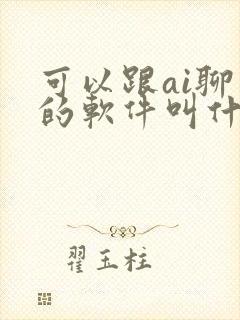 可以跟ai聊
的軟件叫什
翟玉柱